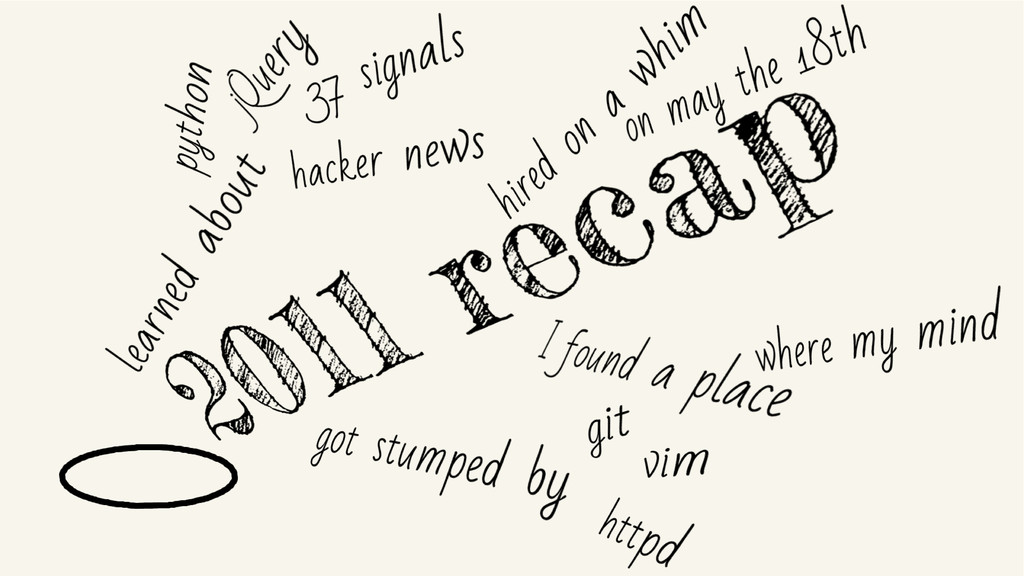 python
jQuery
37 signals
hacker news
learned about
hired on a whim
on may the 18th
2011 recap
I found a place
where my mind
got stumped by
git
vim
httpd